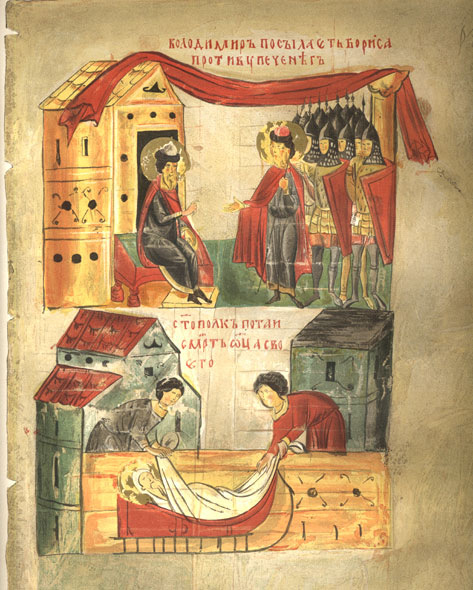 володимиръ посылаєть бориса
противу печенѣгъ
с҃тополкъ потаи
см҃рть ѡц҃а сво
єго